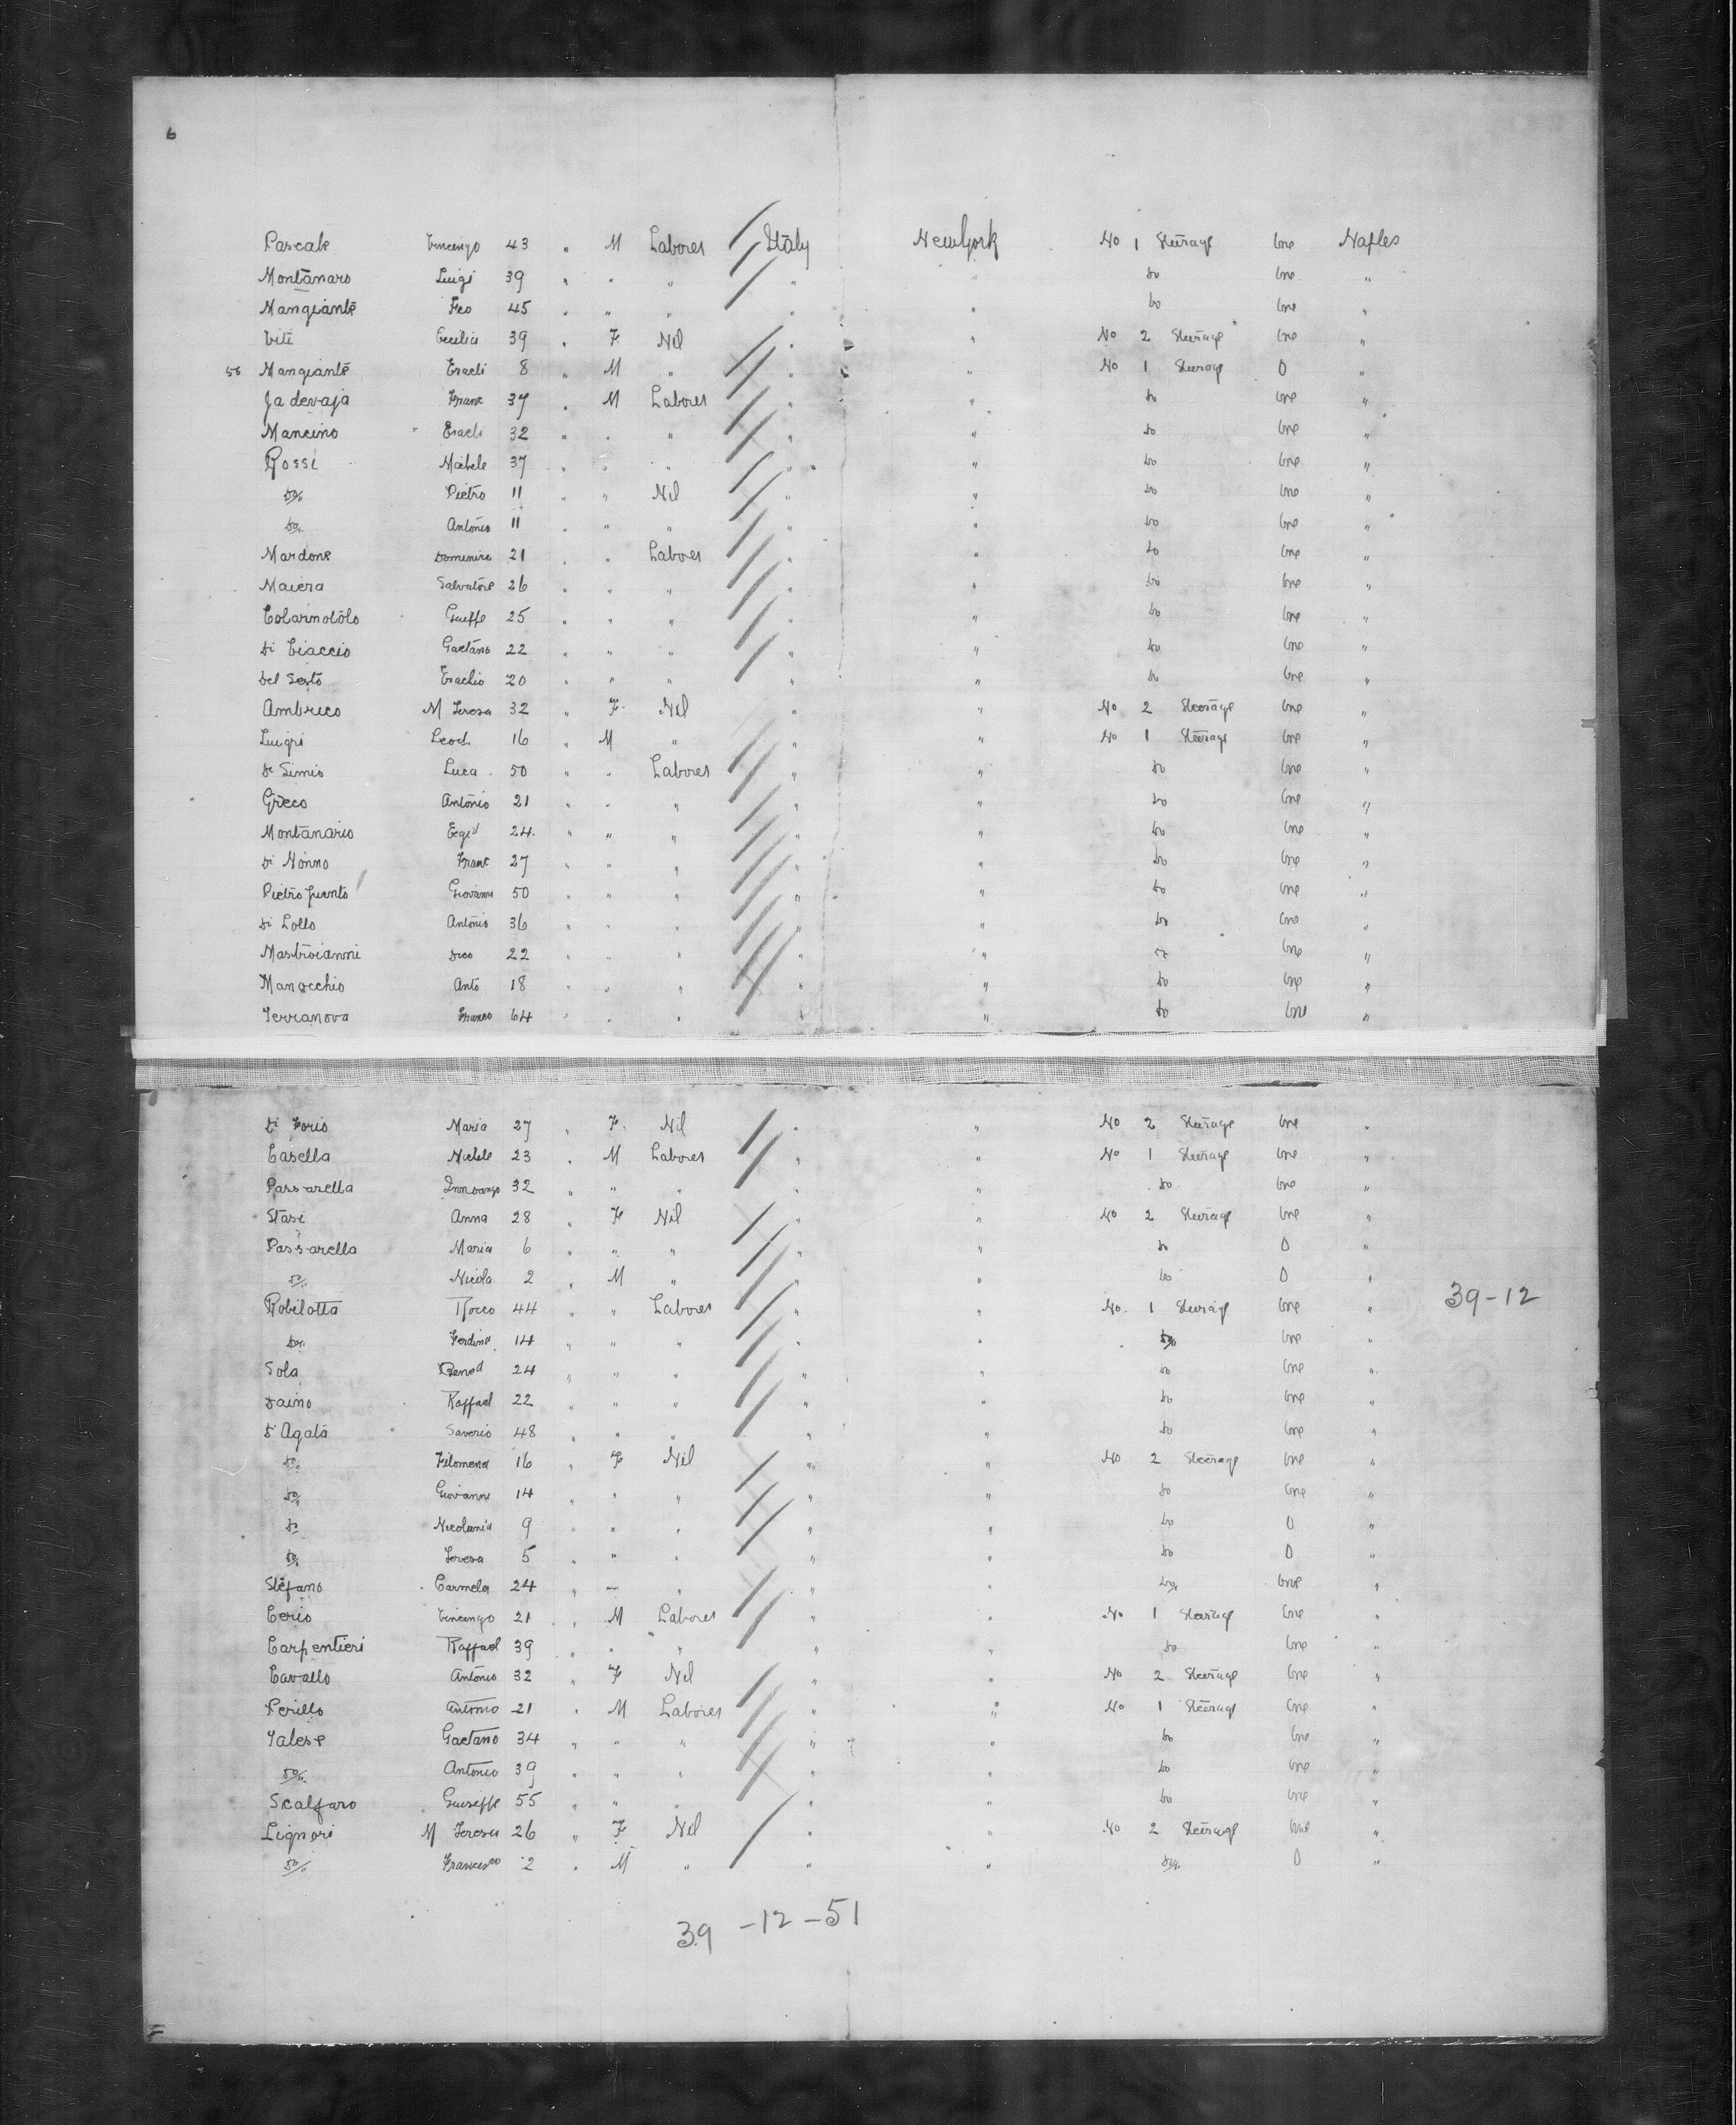 6
Pascale Vincenzo 43 " M Labores Italy New York No 1 Steerage One Naples
Montanaro Luigi 39 " " " " " do One "
Mangiante Fco 45 " " " " " do One "
Viti Cecilia 39 " F Nil " " No 2 Steerage One "
56 Mangiante Eracli 8 " M " " " No 1 Steerage 0 "
Ja devaja Franc 37 " M Labores " " do One "
Mancino Eracli 32 " " " " " do One "
Rossi Michele 37 " " " " " do One "
do Pietro 11 " " Nil " " do One "
do Antonio 11 " " " " " do One "
Mardone Domenico 21 " " Labores " " do One "
Maiera Salvatore 26 " " " " " do One "
Colarnotolo Gueffe 25 " " " " " do One "
Di Ciaccio Gaetano 22 " " " " " do One "
Del Sesto Erachio 20 " " " " " do One "
Ambreco M Teresa 32 " F Nil " " No 2 Steerage One "
Luigri Leod 16 " M " " " No 1 Steerage One "
De Simio Luca 50 " " Labores " " do One "
Greco Antonio 21 " " " " " do One "
Montanario Eegid 24 " " " " " do One "
Di Nonno Franc 27 " " " " " do One "
Pietro Giovanni 50 " " " " " do One "
Di Lollo Antonio 36 " " " " " do One "
Mastroianni Dco 22 " " " " " do One "
Manocchio Anto 18 " " " " " do One "
Terranova Franco 64 " " " " " do One "
Di Iorio Maria 27 " F Nil " " No 2 Steerage One "
Casella Michele 23 " M Labores " " No 1 Steerage One "
Passarella 32 " " " " " do One "
Stasi Anna 28 " F Nil " " No 2 Steerage One "
Passarella Maria 6 " " " " " do 0 "
do Nicola 2 " M " " " do 0 "
39-12
Robilotta Rocco 44 " " Labores " " No 1 Steerage One "
do Ferdind 14 " " " " " do One "
Sola Bened 24 " " " " " do One "
Daino Raffael 22 " " " " " do One "
D'Agata Saverio 48 " " " " " do One "
do Filomena 16 " F Nil " " No 2 Steerage One "
do Giovanni 14 " " " " " do One "
do Nicolania 9 " " " " " do 0 "
do Teresa 5 " " " " " do 0 "
Stefano Carmela 24 " " " " " do One "
Cerio Vincenzo 21 " M Labores " " No 1 Steerage One "
Carpentieri Raffael 39 " " " " " do One "
Cavallo Antonio 32 " F Nil " " No 2 Steerage One "
Perillo Antonio 21 " M Labores " " No 1 Steerage One "
Talese Gaetano 34 " " " " " do One "
do Antonio 39 " " " " " do One "
Scalfaro Giuseppe 55 " " " " " do One "
Lignori M Teresa 26 " F Nil " " No 2 Steerage One "
do Francesco 2 " M " " " do 0 "
39 -12 -51